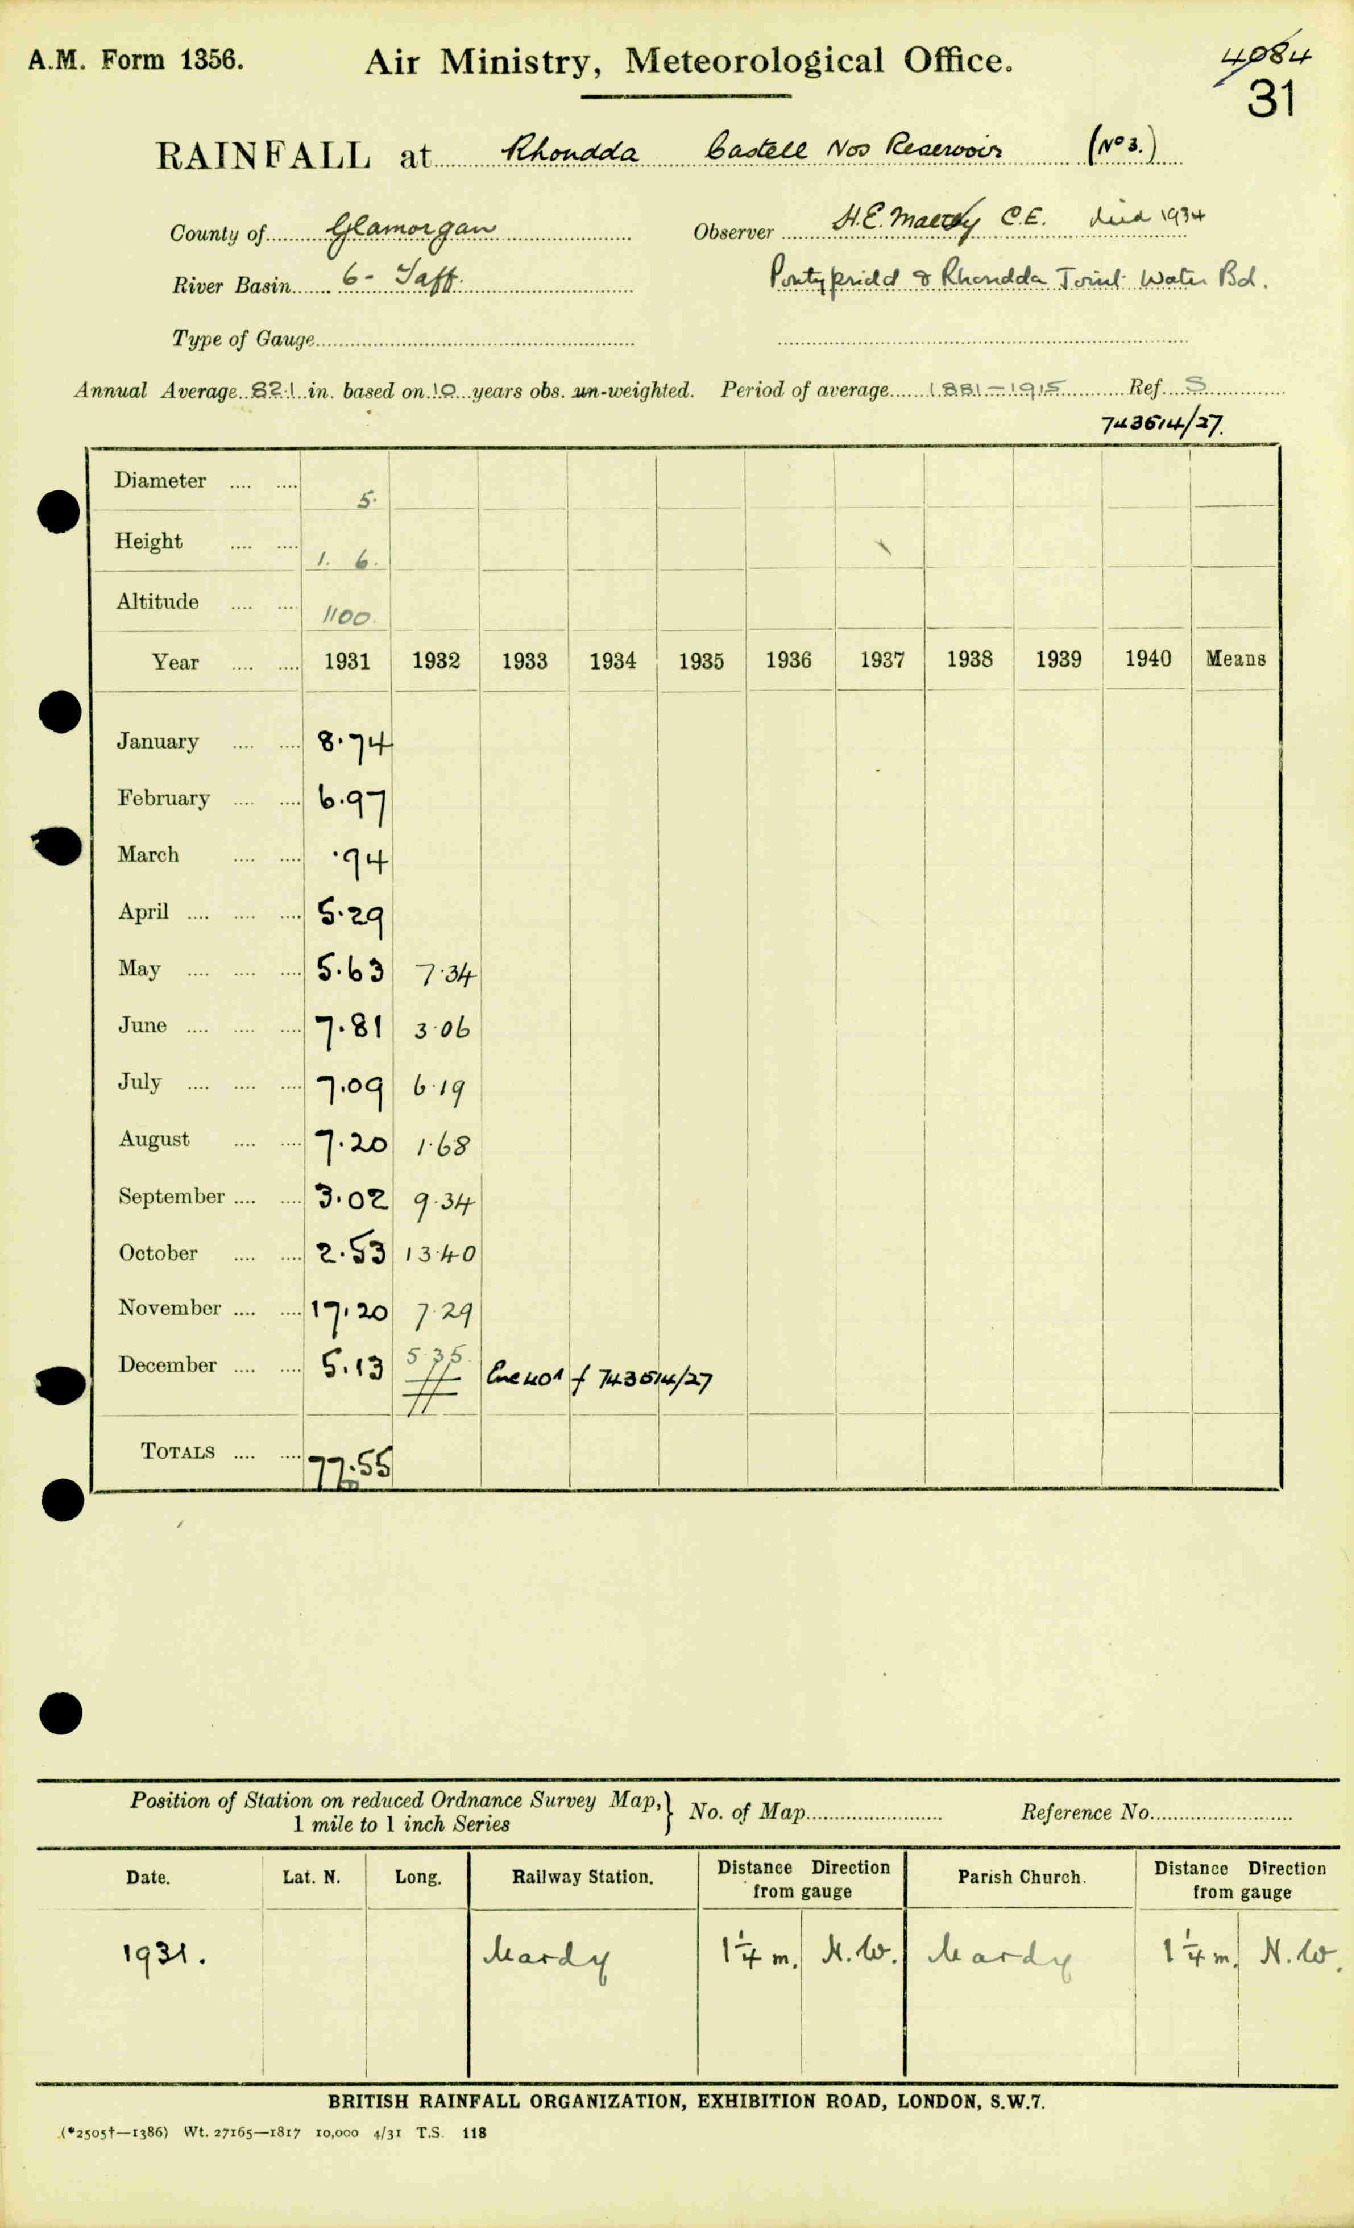 A.M. Form 1356. Air Ministry, Meteorological Office. 4084
31
RAINFALL at Rhondda Castell Nos Reservoir (No 3.)
County of Glamorgan Observer H.E. C.E. died 1934
River Basin 6 - Taff. Pontypridd & Rhondda Joint Water Bd.
Type of Gauge
Annual Average 82.1 in. based on 10 years obs. un-weighted. Period of average 1881-1915 Ref. S
743514/27.
Diameter 5.
Height 1. 6.
Altitude 1100.
Year 1931 1932 1933 1934 1935 1936 1937 1938 1939 1940 Means
January 8.74
February 6.97
March .94
April 5.29
May 5.63 7.34
June 7.81 3.06
July 7.09 6.19
August 7.20 1.68
September 3.02 9.34
October 2.53 13.40
November 17.20 7.29
December 5.13 5.35 743514/27
TOTALS 77.55
Position of Station on reduced Ordnance Survey Map, } No. of Map Reference No.
1 mile to 1 inch Series
Date. Lat. N. Long. Railway Station. Distance Direction from gauge Parish Church. Distance Direction from gauge
1931. Mardy 1¼ m. N.W. Mardy 1¼ m. N.W.
BRITISH RAINFALL ORGANIZATION, EXHIBITION ROAD, LONDON, S.W.7.
(*2505†—1386) Wt. 27165—1817 10,000 4/31 T.S. 118